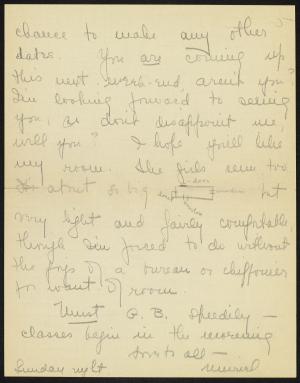 chance to make any other
dates. You are coming up
this next week-end, aren't you?
I'm looking forward to seeing
you, so don't disappoint me,
will you? I hope you'll like
my room. The girls
about so big but
door
window
very light and fairly comfortable,
though I'm forced to do without
the joys of a bureau or chiffonier
for want of room.
Must G. B. speedily –
classes begin in the morning
Love to all –
Sunday night Muriel